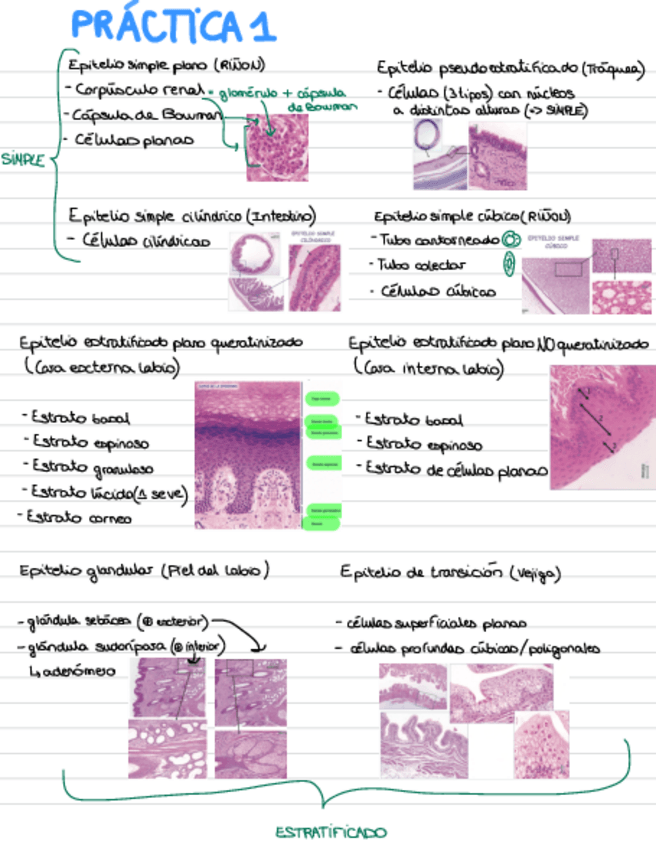 PRÁCTICA 1
Epitelio simple plano (RIÑON)
- Corpúsculo renal = glomérulo + cápsula
de Bowman
- Cápsula de Bowman
- Células planas
SIMPLE
Epitelio pseudoestratificado (Tráquea)
- Células (3 tipos) con núcleos
a distintas alturas (=> SIMPLE)
Epitelio simple cilíndrico (Intestino)
- Células cilíndricas
EPITELIO SIMPLE
CILÍNDRICO
Epitelio simple cúbico (RIÑON)
- Tubo contorneado
- Tubo colector
- Células cúbicas
EPITELIO SIMPLE
CÚBICO
Epitelio estratificado plano queratinizado
(Cara externa labio)
- Estrato basal
- Estrato espinoso
- Estrato granuloso
- Estrato lúcido
- Estrato corneo
Epitelio estratificado plano NO queratinizado
(Cara interna labio)
- Estrato basal
- Estrato espinoso
- Estrato de células planas
Epitelio glandular (Piel del labio)
- glándula sebácea (⊕ exterior)
- glándula sudorípara (⊕ interior)
↳ adenómero
Epitelio de transición (Vejiga)
- células superficiales planas
- células profundas cúbicas/poligonales
ESTRATIFICADO